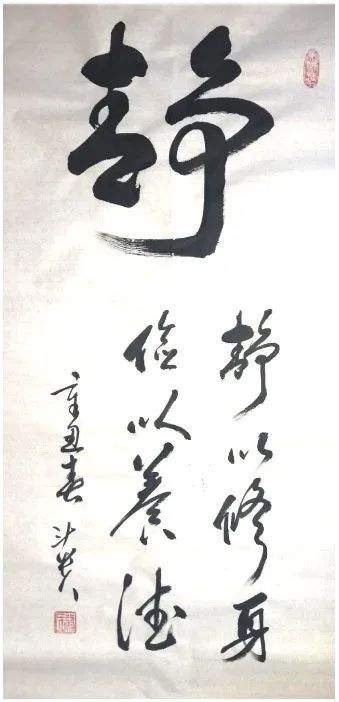 静
静以修身
俭以养德
辛丑春